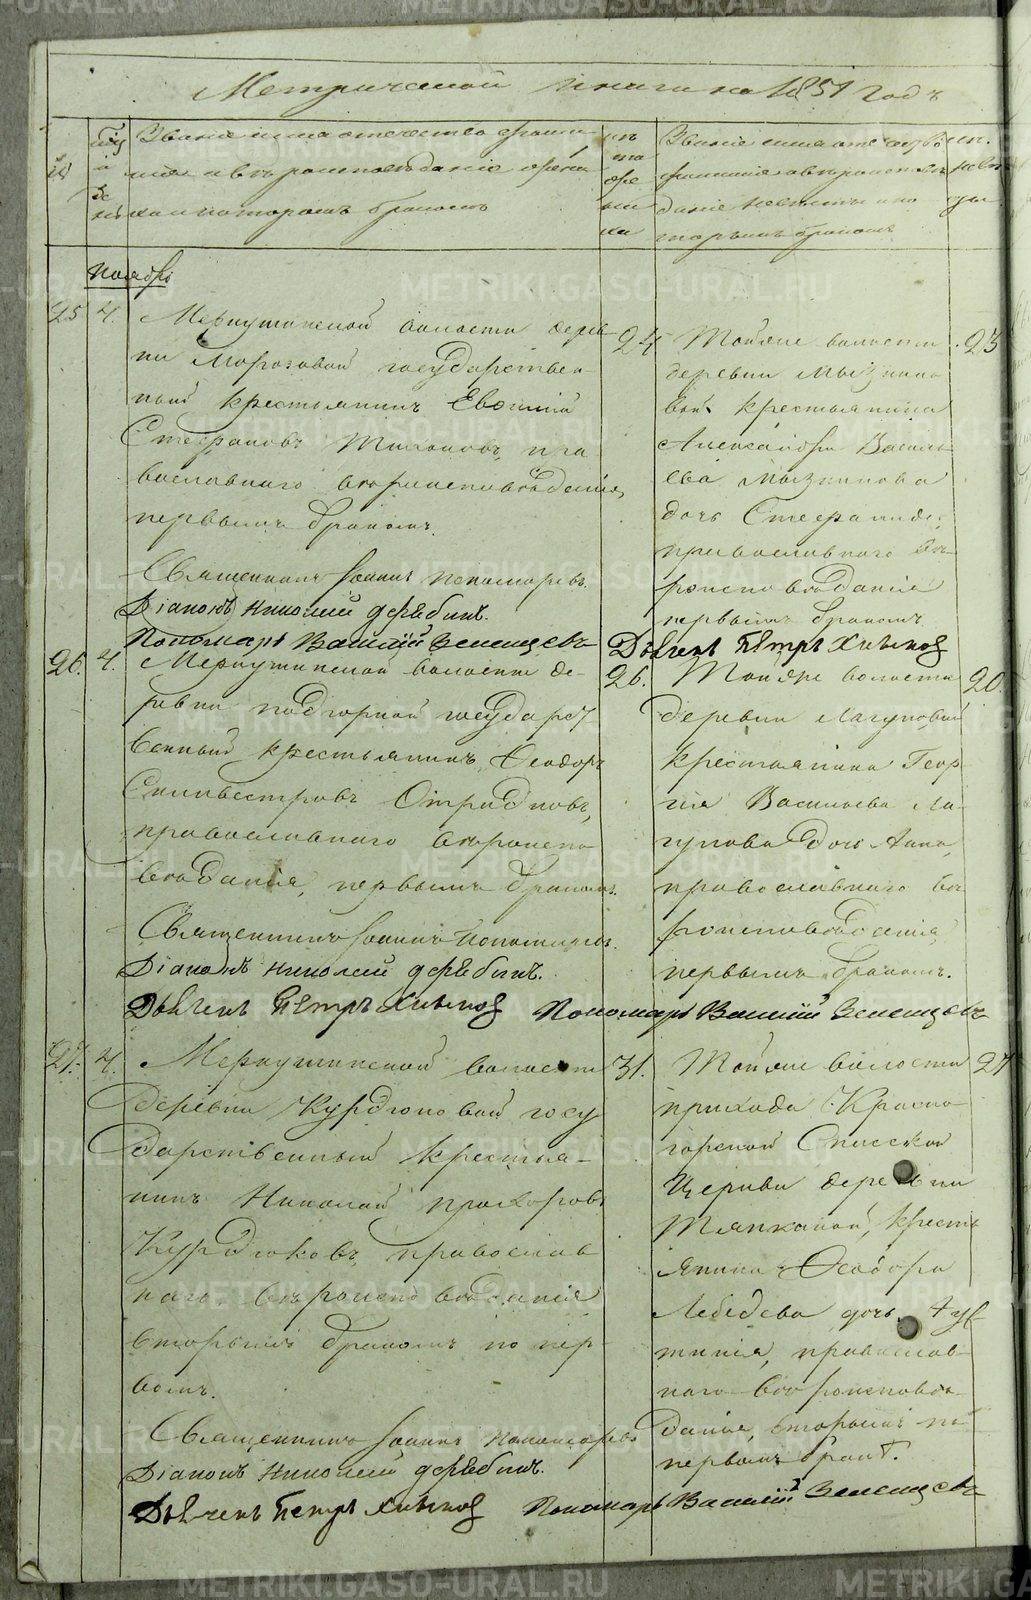 Метрической книги на 1851 годъ
Званіе имя отечество фами-
лія и вѣроисповѣданіе жени-
ха и которымъ бракомъ
Званіе имя отечество
фамилія и вѣроисповѣ-
даніе невѣсты и ко-
торымъ бракомъ
Ноябрь
25 4. Меркушинской волости дерев-
ни Морозовой государствен-
ный крестьянинъ Евфимій
Стефановъ пра
вославнаго вѣроисповѣданія,
первымъ бракомъ.
Священникъ Іоаннъ Пономаревъ.
Діаконъ Николай
Пономарь Василій Зеленцовъ
24 Той же волости 23
деревни Мызнико
вой крестьянина
Александра Василь
ева Мызникова
дочь Стефанида,
православнаго вѣ-
роисповѣданія
первымъ бракомъ
Дьячекъ Петръ Хлыновъ
26. 4. Меркушинской волости де-
ревни Подгорной государст
венный крестьянинъ Ѳеодоръ
Силивестровъ Отрадновъ,
православнаго вѣроиспо
вѣданія, первымъ бракомъ.
Священникъ Іоаннъ Пономаревъ.
Діаконъ Николай
Дьячекъ Петръ Хлыновъ Пономарь Василій Зеленцовъ
26. Той же волости 20.
деревни Лагуновой
крестьянина Геор-
гія Васильева Ла-
гунова дочь Анна,
православнаго вѣ
роисповѣданія,
первымъ бракомъ.
27. 4. Меркушинской волости
деревни Курдюковой госу
дарственный крестья-
нинъ Николай Прохоровъ
Курдюковъ, православ
наго вѣроисповѣданія
вторымъ бракомъ по пер-
вомъ.
Священникъ Іоаннъ Пономаревъ
Діаконъ Николай
Дьячекъ Петръ Хлыновъ Пономарь Василій Зеленцовъ
31. Той же волости 27
прихода Красно-
горской Спасской
Церкви деревни
крестья
янина Ѳеодора
Лебедева дочь
православ-
наго вѣроисповѣ-
данія, вторымъ по
первомъ бракѣ.
METRIKI.GASO-URAL.RU